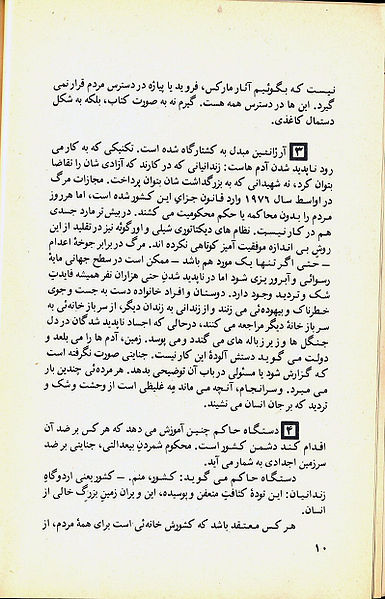 نیست که بگوئیم آثار مارکس، فروید یا پیاژه در دسترس مردم قرار نمی
گیرد. این ها در دسترس همه هست. گیرم نه به صورت کتاب، بلکه به شکل
دستمال کاغذی.
۳ آرژانتین مبدل به کشتارگاه شده است. تکنیکی که به کار می
رود ناپدید شدن آدم هاست: زندانیانی که در کارند که آزادی شان را تقاضا
بتوان کرد، نه شهیدانی که به بزرگداشت شان بتوان پرداخت. مجازات مرگ
در اواسط سال ۱۹۷۶ وارد قانون جزای این کشور شده است، اما هر روز
مردم را بدون محاکمه یا حکم محکومیت می کشند. در بیش تر مارد جسدی
هم در کار نیست. نظام های دیکتاتوری شیلی و اورگوئه نیز در تقلید از این
روش بی اندازه موفقیت آمیز کوتاهی نکرده اند. مرگ در برابر جوخهٔ اعدام
– حتی اگر تنها یک مورد هم باشد – ممکن است در سطح جهانی مایهٔ
رسوائی و آبروریزی شود اما در ناپدید شدنِ حتی هزاران نفر همیشه فایدتِ
شک و تردید وجود دارد. دوستان و افراد خانواده دست به جست و جوی
خطرناک و بیهوده ئی می زنند و از زندانی به زندان دیگر، از سرباز خانه ئی به
سربازخانهٔ دیگر مراجعه می کنند، درحالی که اجساد ناپدید شدگان در دل
جنگل ها و زیر زباله های می گندد و می پوسد. زمین، آدم ها را می بلعد و
دولت می گوید دستش آلودهٔ این کار نیست. جنایتی صورت نگرفته است
که گزارش شود یا مسئولی در باب آن توضیحی بدهد. هر مرده ئی چندین بار
می میرد. و سرانجام، آنچه می ماند مِه غلیظی است از وحشت و شک و
تردید که بر جان انسان می نشیند.
۴ دستگاه حاکم چنین آموزش می دهد که هر کس بر ضد آن
اقدام کند دشمن کشور است. محکوم شمردنِ بیعدالتی، جنایتی بر ضد
سرزمین اجدادی به شمار می آید.
دستگاه حاکم می گوید: کشور، منم. – کشور یعنی اردوگاهِ
زندانیان: این تودهٔ کثافتِ متعفن و پوسیده، این ویران زمین بزرگِ خالی از
انسان.
هر کس معتقد باشد که کشورش خانه ئی است برای همهٔ مردم، از
۱۰